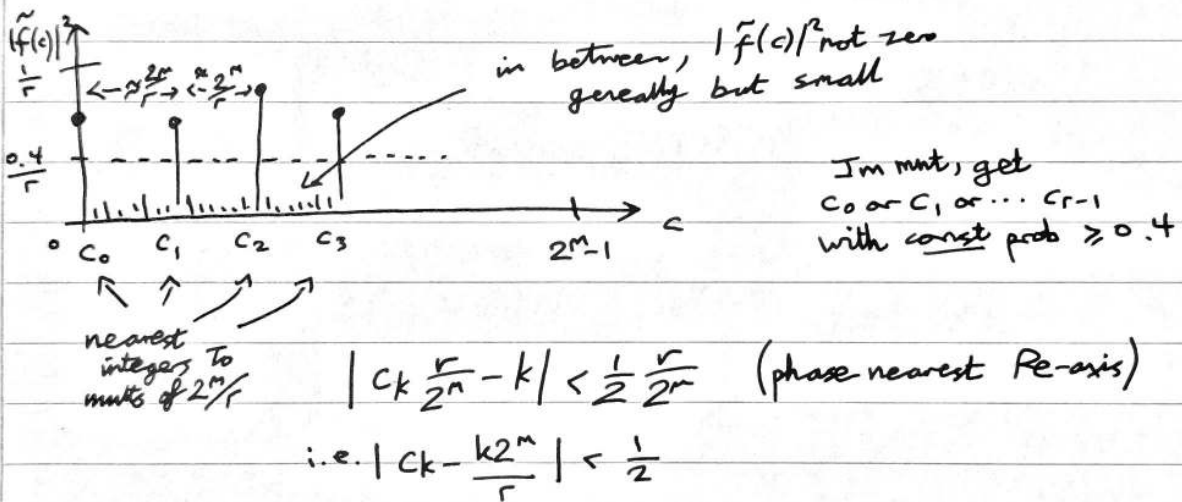 |f̃(c)|²
1/r
<-≈ 2^m/r -> <-≈ 2^m/r ->
in between, |f̃(c)|² not zero
gereally but small
0.4/r
Im mnt, get
C₀ or C₁ or ... Cr-1
with const prob ≥ 0.4
0 C₀ C₁ C₂ C₃ 2^m-1 c
nearest
integers to
mults of 2^m/r
| Ck r/2^m - k | < 1/2 r/2^m (phase nearest Re-axis)
i.e. | Ck - k2^m/r | < 1/2